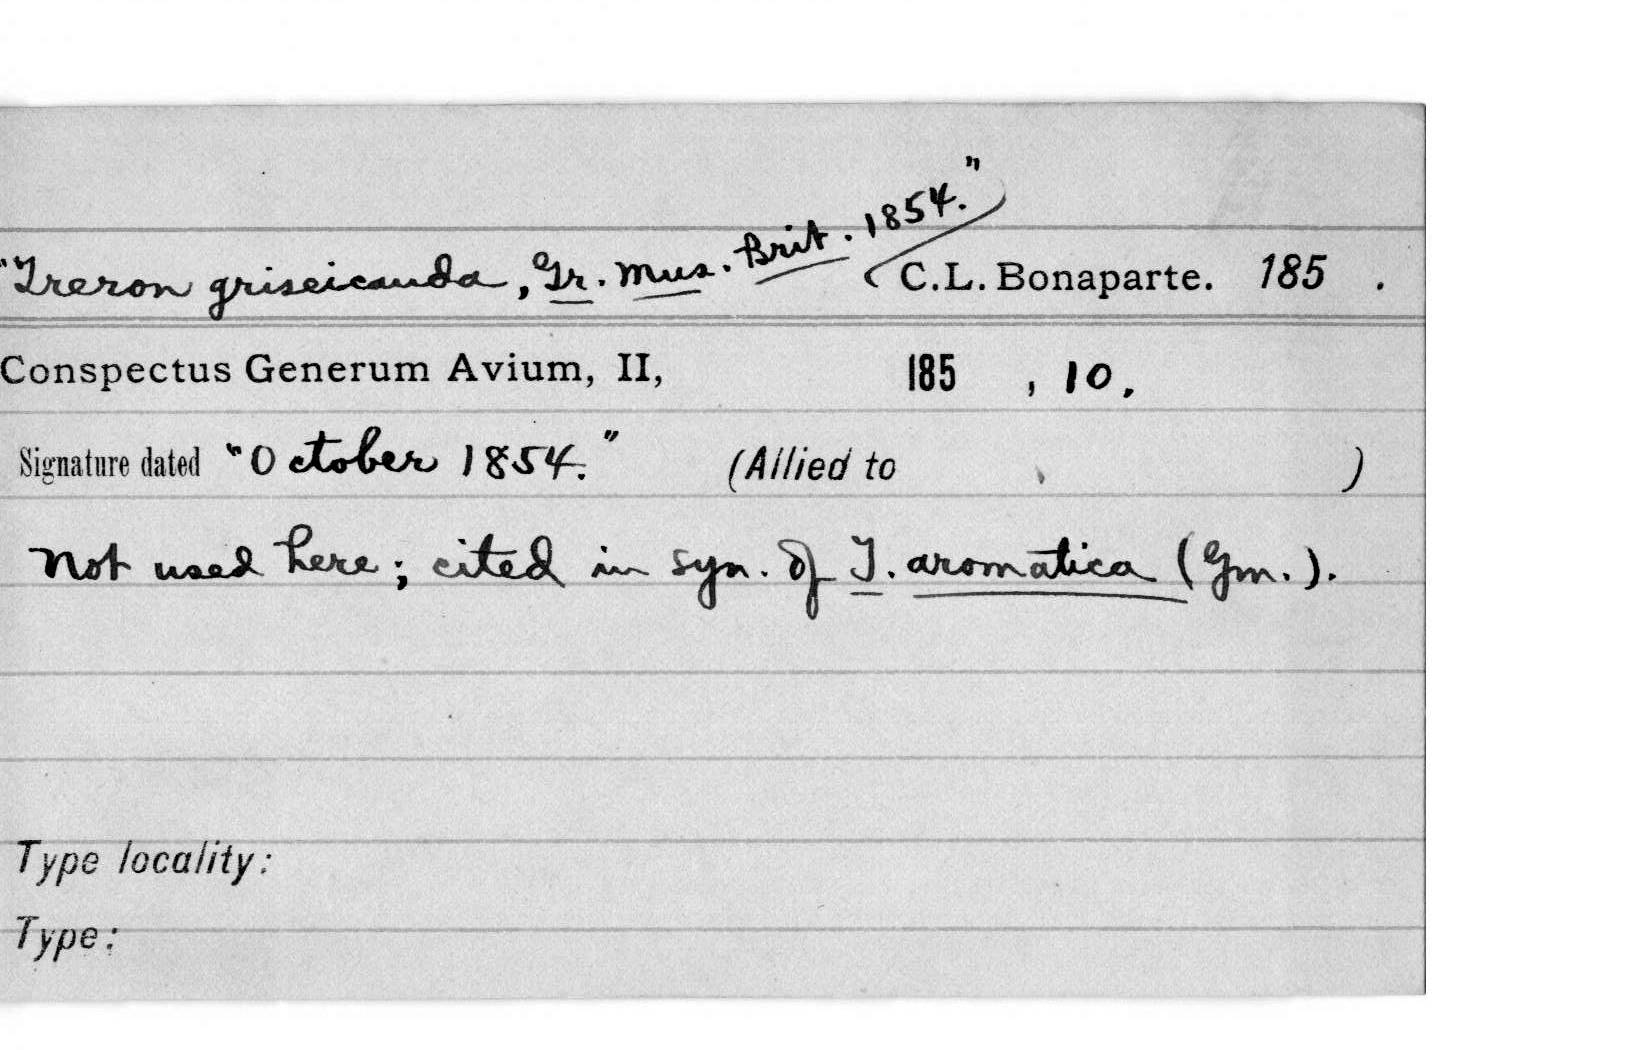 "Treron griseicauda, Gr. Mus. Brit. 1854." (C.L. Bonaparte. 185 .
Conspectus Generum Avium, II, 185 , 10.
Signature dated "October 1854." (Allied to )
Not used here; cited in syn. of T. aromatica (Gm.).
Type locality:
Type: